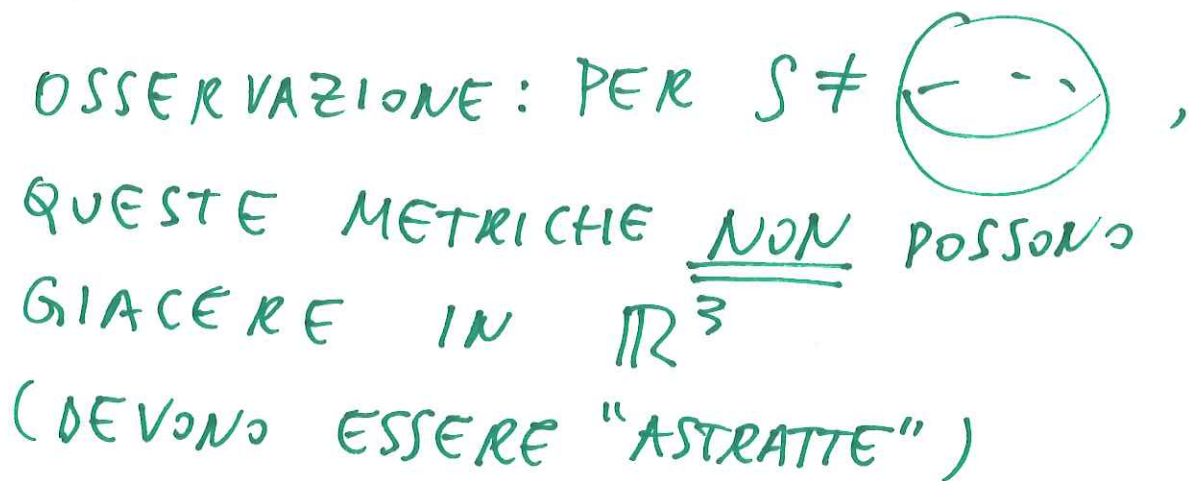 OSSERVAZIONE: PER S ≠ ,
QUESTE METRICHE NON POSSONO
GIACERE IN ℝ³
(DEVONO ESSERE "ASTRATTE")